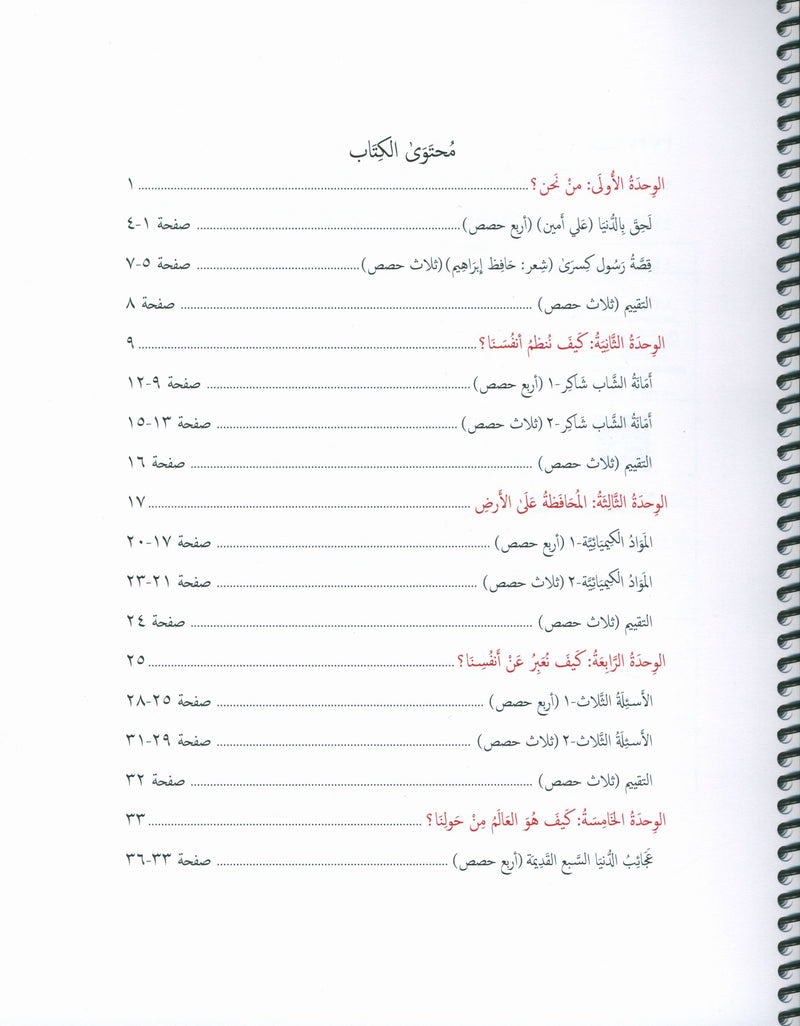 مُحتَوَىٰ الكِتَاب
الوِحدَةُ الأُولَى: مَنْ نَحن؟ ١
لَحِقَ بِالدُّنيَا (عَلي أَمين) (أَربع حصص) صفحة ١-٤
قِصَّةُ رَسُول كِسرَىٰ (شِعر: حَافِظ إِبرَاهِيم) (ثلاث حصص) صفحة ٥-٧
التقييم (ثلاث حصص) صفحة ٨
الوِحدَةُ الثَّانِيَةُ: كَيفَ نُنظمُ أَنفُسَنَا؟ ٩
أَمَانَةُ الشَّاب شَاكِر-١ (أَربع حصص) صفحة ٩-١٢
أَمَانَةُ الشَّاب شَاكِر-٢ (ثلاث حصص) صفحة ١٣-١٥
التقييم (ثلاث حصص) صفحة ١٦
الوِحدَةُ الثَّالِثَةُ: المُحَافَظَةُ عَلَىٰ الأَرضِ ١٧
المَوَادُ الكِيمِيَائِيَّة-١ (أربع حصص) صفحة ١٧-٢٠
المَوَادُ الكِيمِيَائِيَّة-٢ (ثلاث حصص) صفحة ٢١-٢٣
التقييم (ثلاث حصص) صفحة ٢٤
الوِحدَةُ الرَّابِعَةُ: كَيفَ نُعَبِرُ عَنْ أَنفُسِنَا؟ ٢٥
الأَسئِلَةُ الثَّلاث-١ (أربع حصص) صفحة ٢٥-٢٨
الأَسئِلَةُ الثَّلاث-٢ (ثلاث حصص) صفحة ٢٩-٣١
التقييم (ثلاث حصص) صفحة ٣٢
الوِحدَةُ الخَامِسَةُ: كَيفَ هُوَ العَالَمُ مِنْ حَولِنَا؟ ٣٣
عَجَائِبُ الدُّنيَا السَّبع القَدِيمَة (أربع حصص) صفحة ٣٣-٣٦